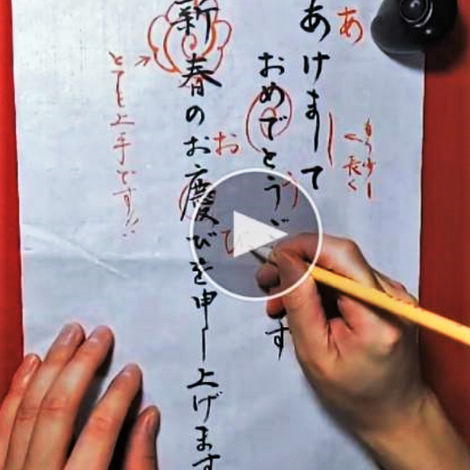 あけまして
おめでとうご
す
新春のお慶びを申し上げます
あ
もう少し
長く
う
お
び
とても上手です!!